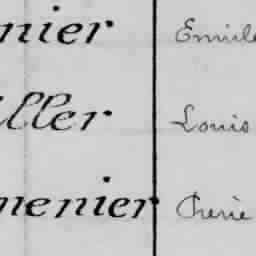 nier Emile
ller Louis
menier Cherie